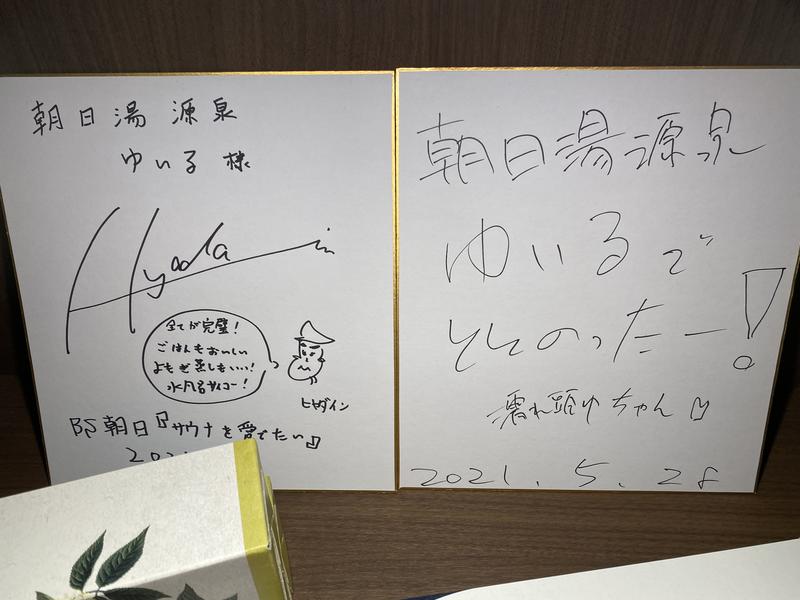 朝日湯源泉
ゆいる様
Hyadain
全てが完璧!
ごはんもおいしい
よもぎ蒸しもいい!
水風呂サイコー!
ヒャダイン
BS朝日『サウナを愛でたい』
202
朝日湯源泉
ゆいるで
ととのったー!
濡れ頭巾ちゃん
2021.5.28